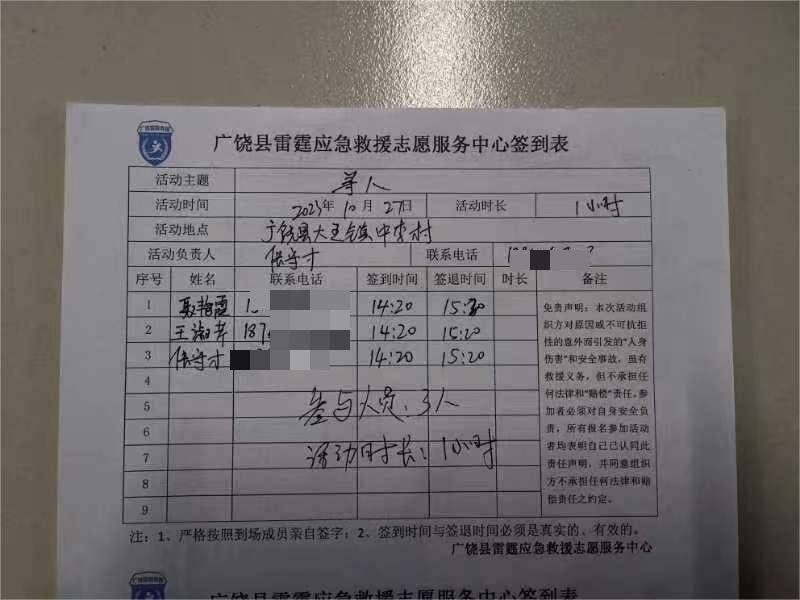 广饶县雷霆应急救援志愿服务中心签到表
活动主题 寻人
活动时间 2023年10月27日 活动时长 1小时
活动地点 广饶县大王镇中李村
活动负责人 任守才 联系电话
序号 姓名 联系电话 签到时间 签退时间 时长 备注
1 聂艳霞 14:20 15:20
2 王淑芹 187 14:20 15:20
3 任守才 14:20 15:20
4
5 参与人员:3人
6
7 活动时长:1小时
8
9
免责声明:本次活动组
织方对原因或不可抗拒
性的意外而引发的“人身
伤害”和安全事故,虽有
救援义务,但不承担任
何法律和“赔偿”责任。参
加者必须对自身安全负
责,所有报名参加活动
者均表明自己已认同此
责任声明,并同意组织
方不承担任何法律和赔
偿责任之约定。
注:1、严格按照到场成员亲自签字;2、签到时间与签退时间必须是真实的、有效的。
广饶县雷霆应急救援志愿服务中心
广饶县雷霆应急救援志愿服务中心签到表